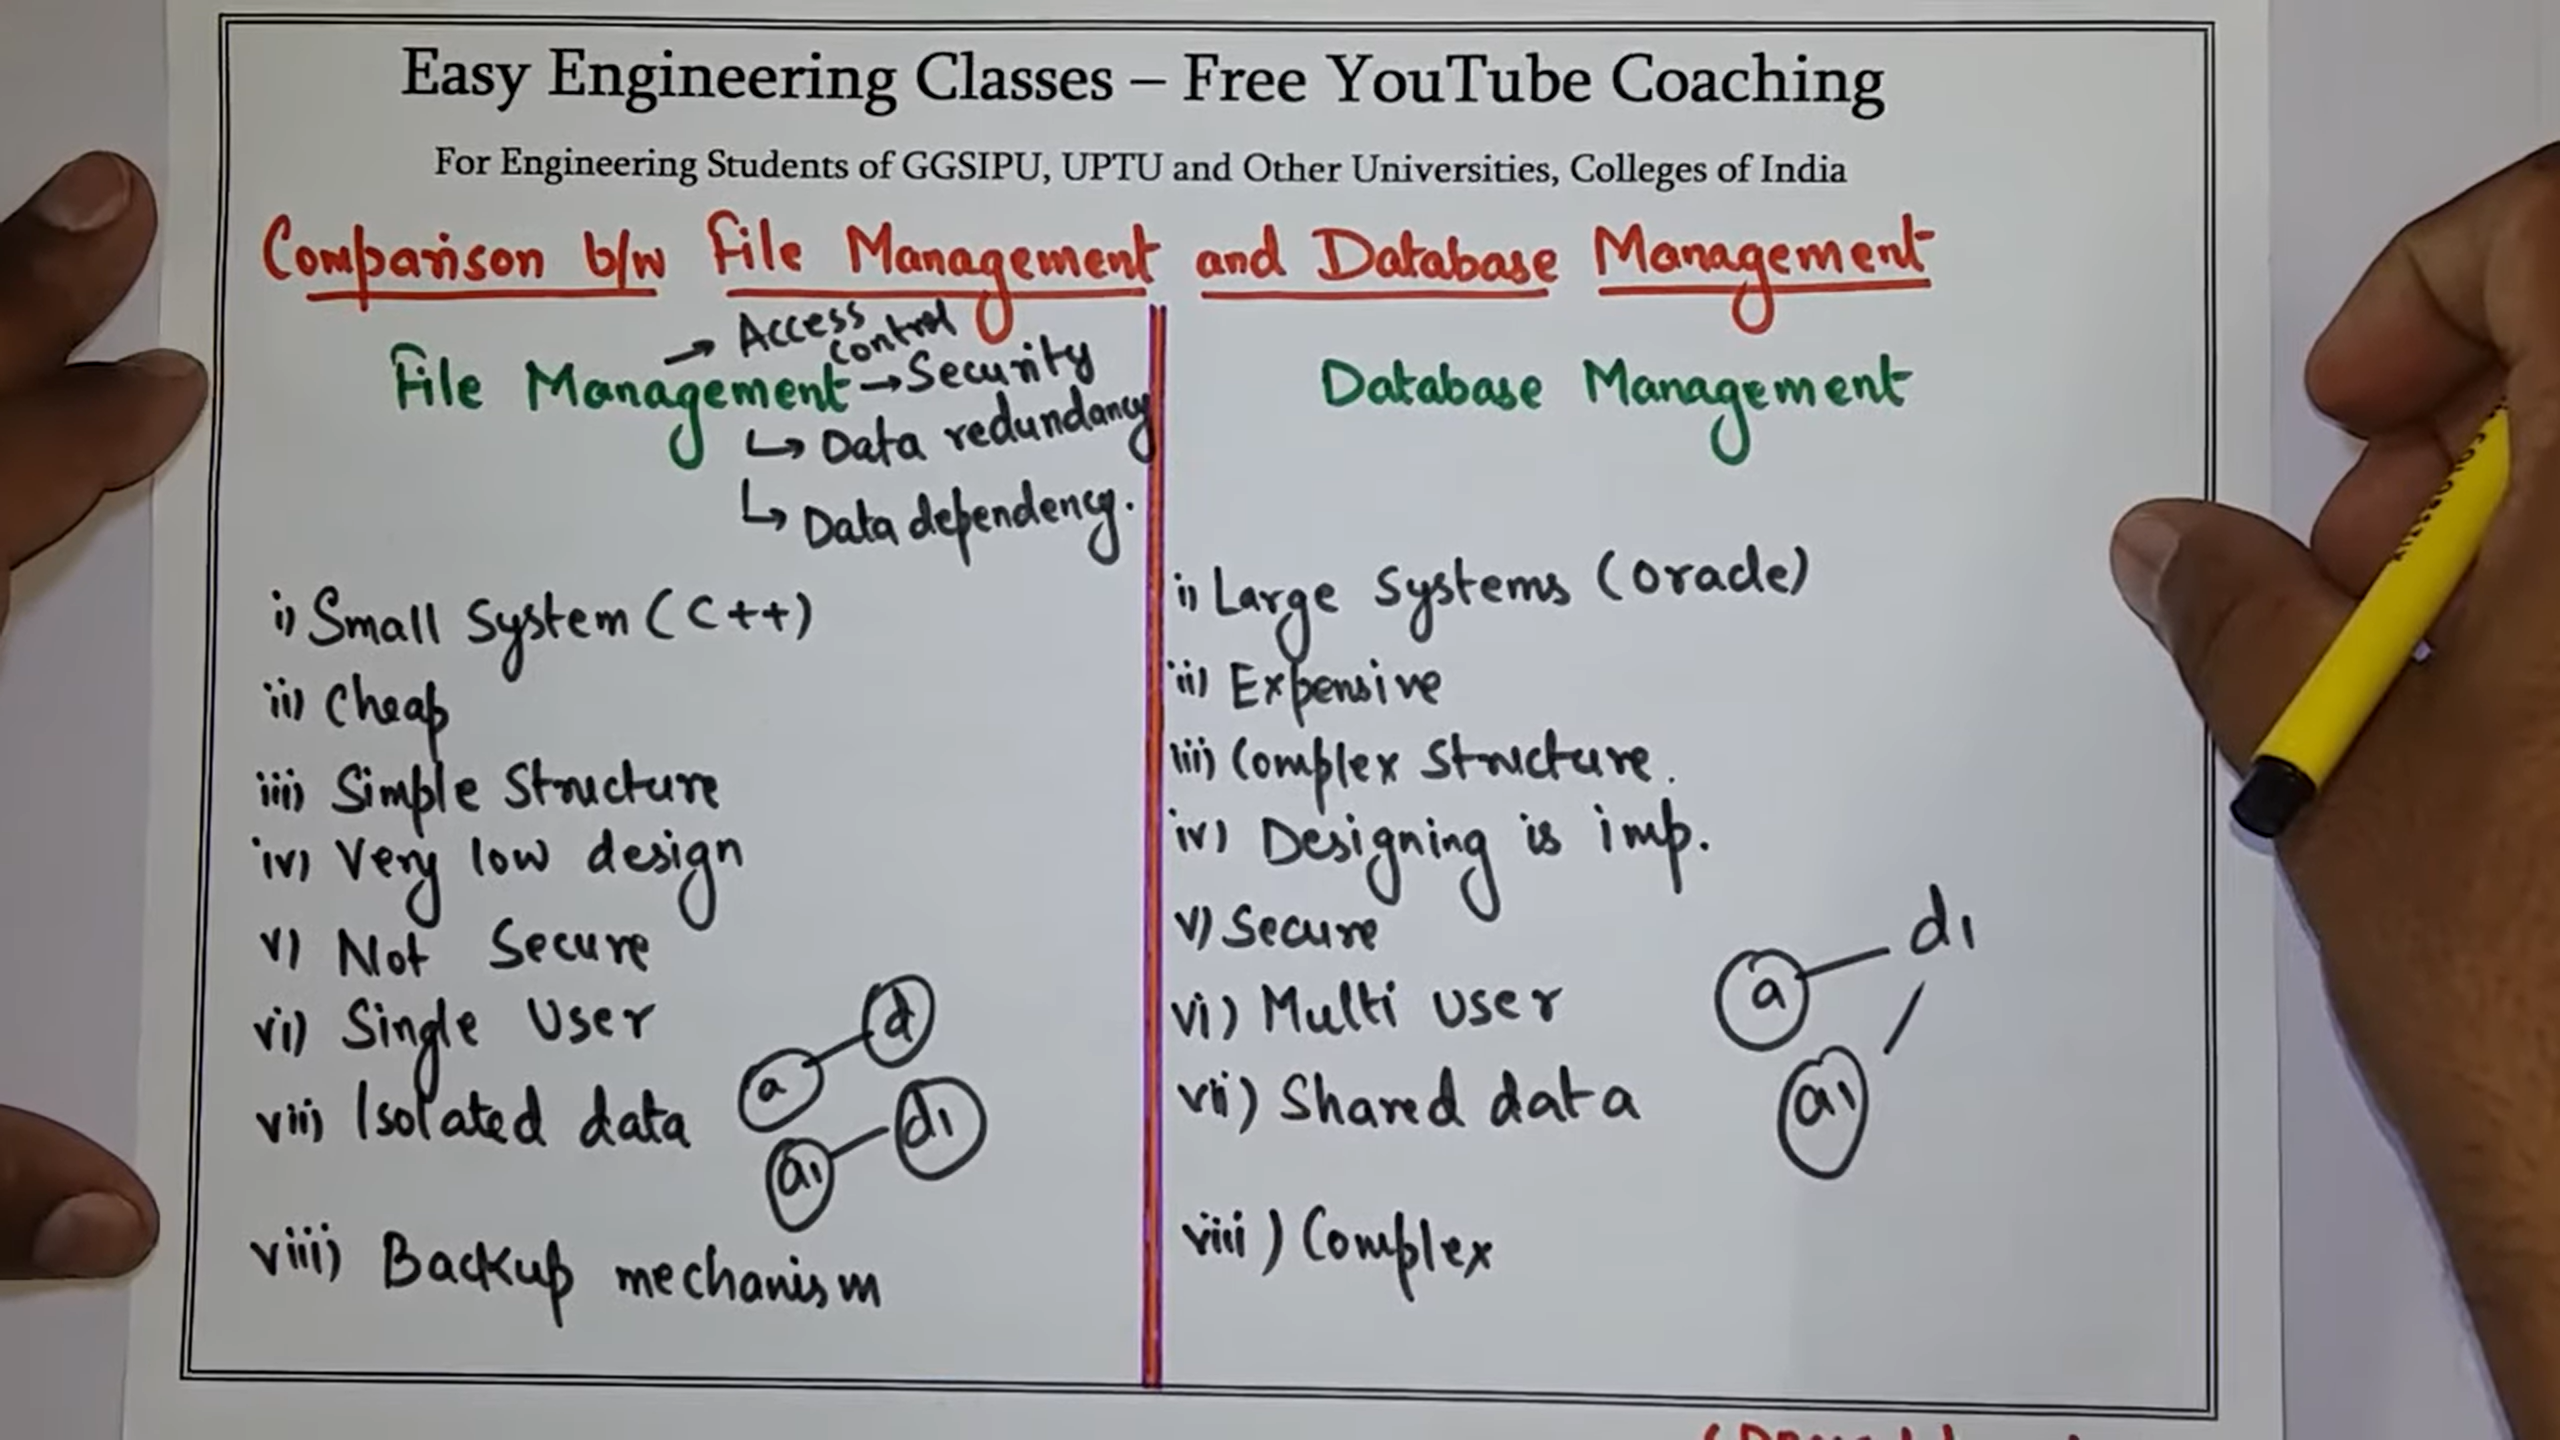 Easy Engineering Classes – Free YouTube Coaching
For Engineering Students of GGSIPU, UPTU and Other Universities, Colleges of India
Comparison b/w File Management and Database Management
File Management
→ Access control
→ Security
↳ Data redundancy
↳ Data dependency.
i) Small System (C++)
ii) Cheap
iii) Simple Structure
iv) Very low design
v) Not Secure
vi) Single User
vii) Isolated data
a d
a1 d1
viii) Backup mechanism
Database Management
i) Large Systems (Oracle)
ii) Expensive
iii) Complex Structure.
iv) Designing is imp.
v) Secure
vi) Multi user
vii) Shared data
a d1
a1
viii) Complex